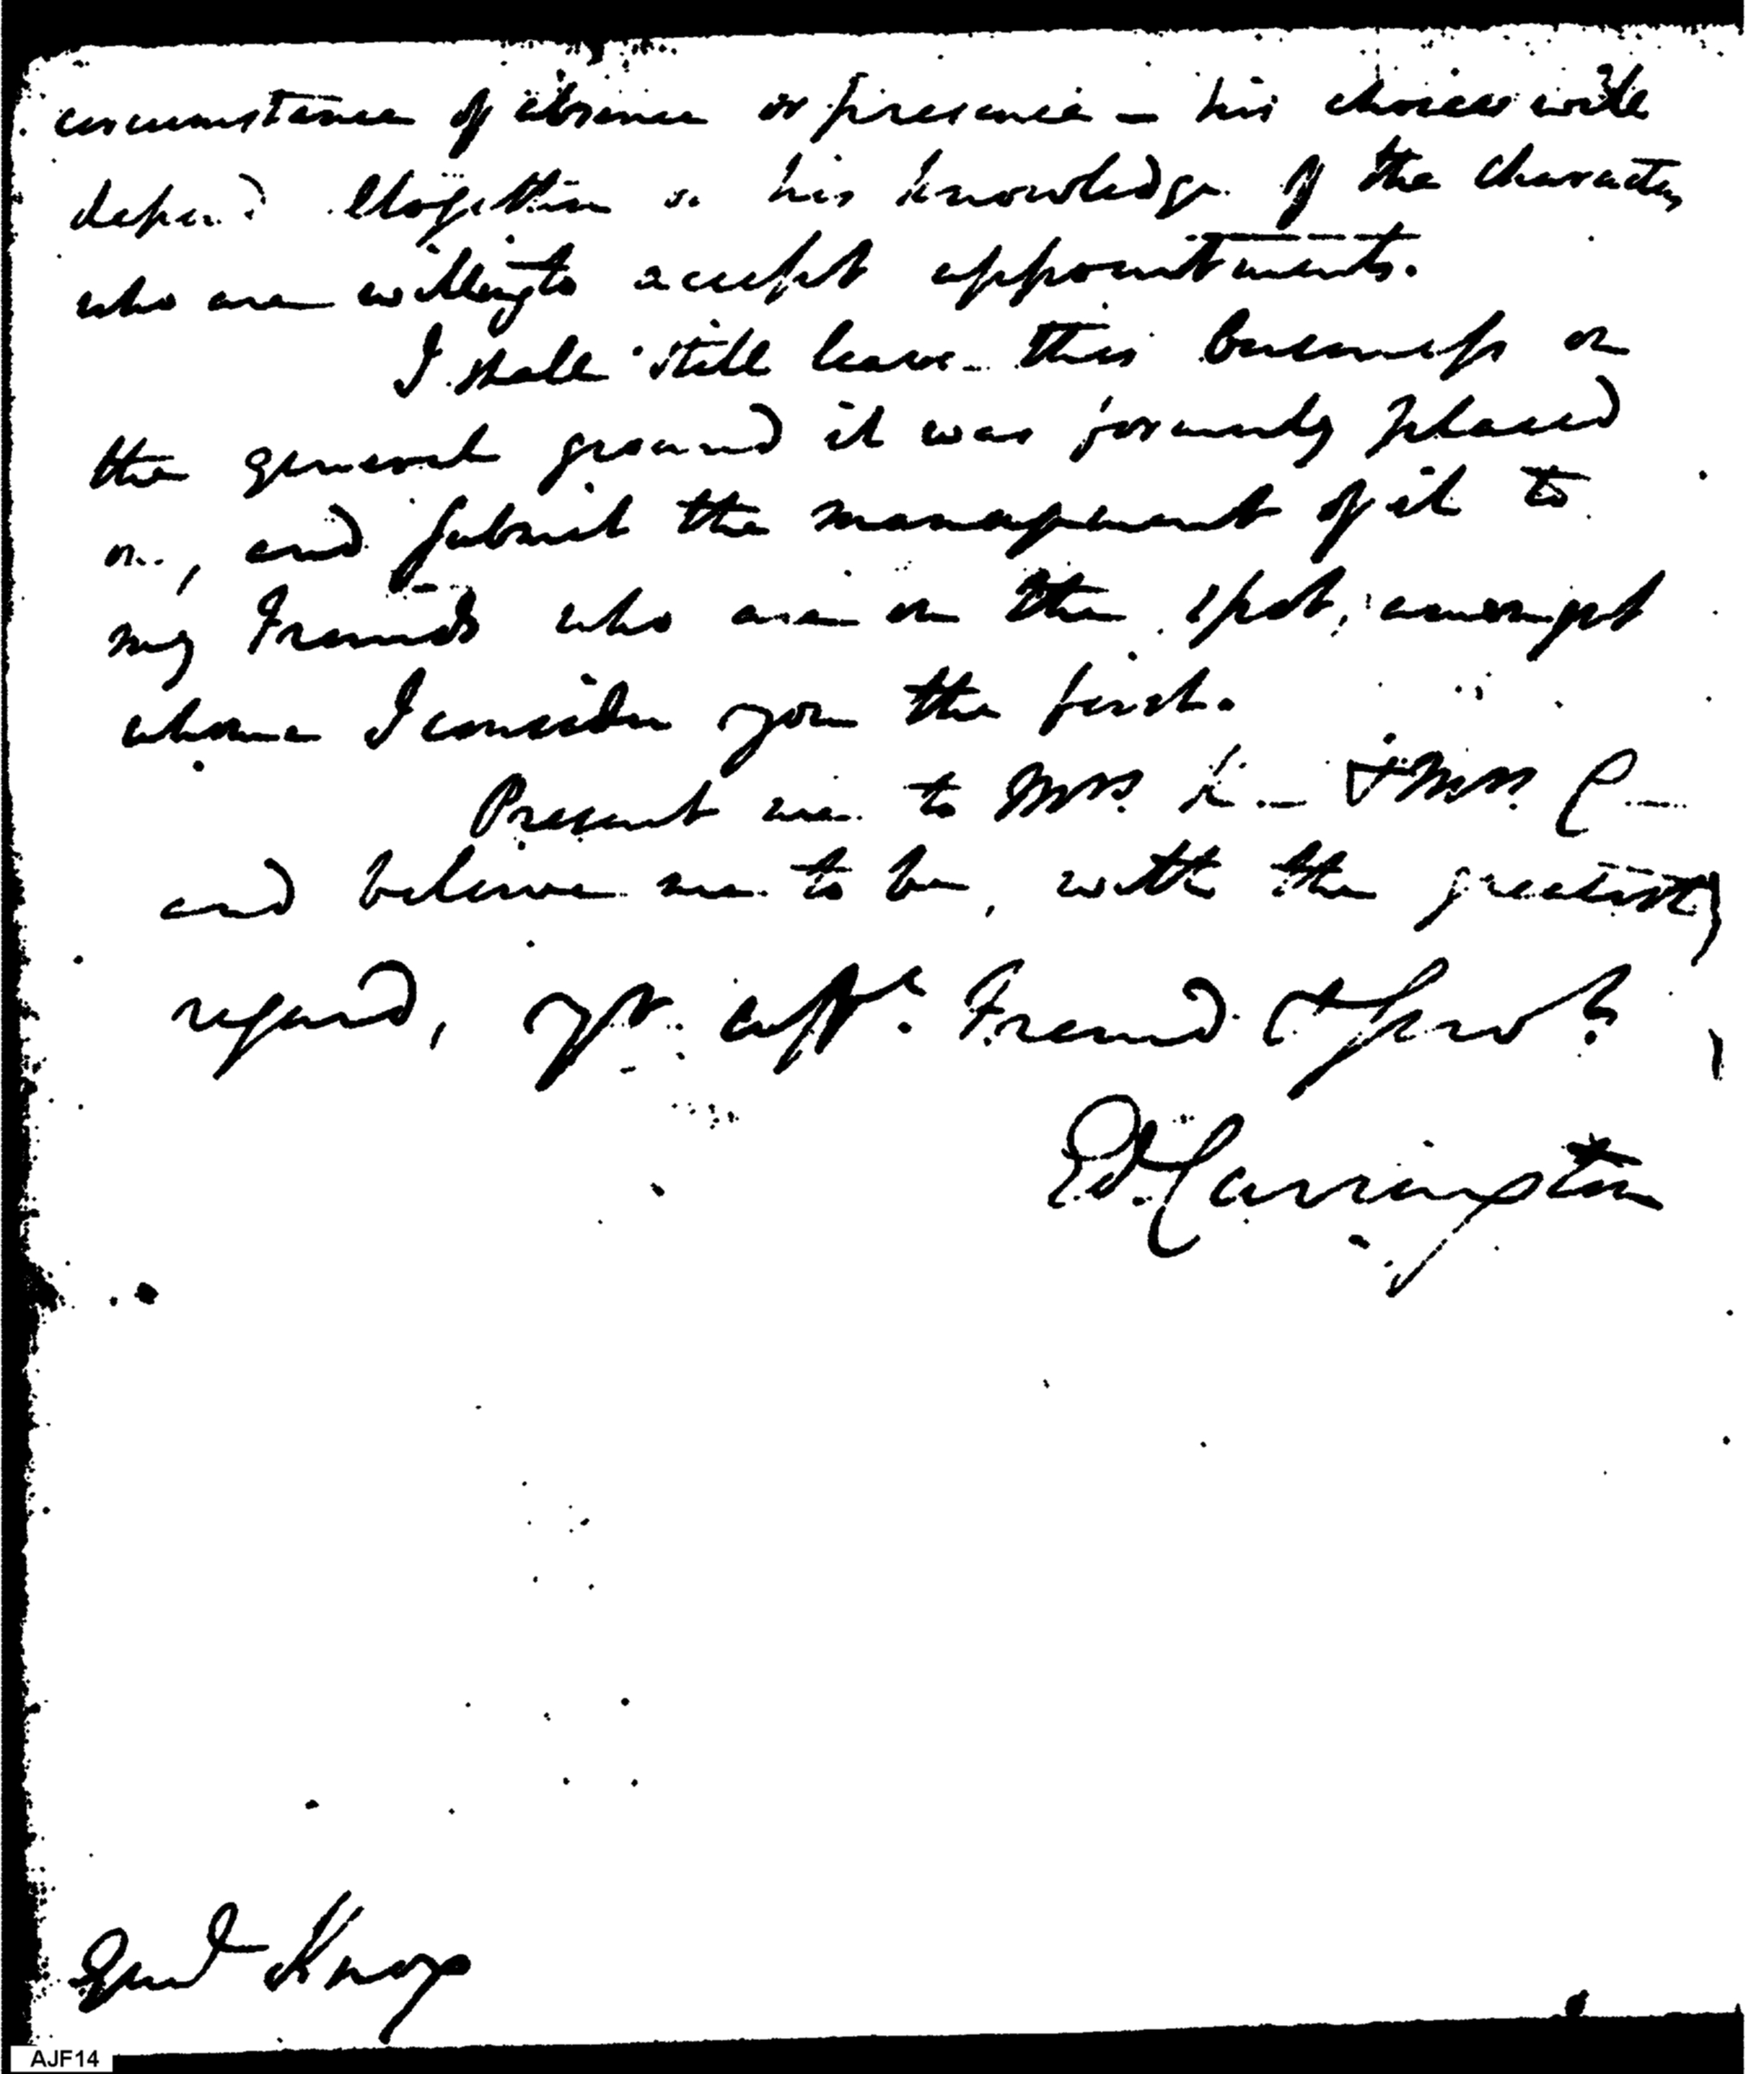 circumstance of absence or presence – his choice will
depend altogether on his knowledge of the characters
who are willing to accept appointments.
I shall still leave this business on
the general ground it was formerly placed
on, and submit the management of it to
my Friends who are on the spot, amongst
whom I consider you the first.
Present me to Mrs. K – & Mrs. C –
and believe me to be, with the greatest
regard, yr. afft. Friend & Servt.
Ed. Carrington
Genl Knox
AJF14